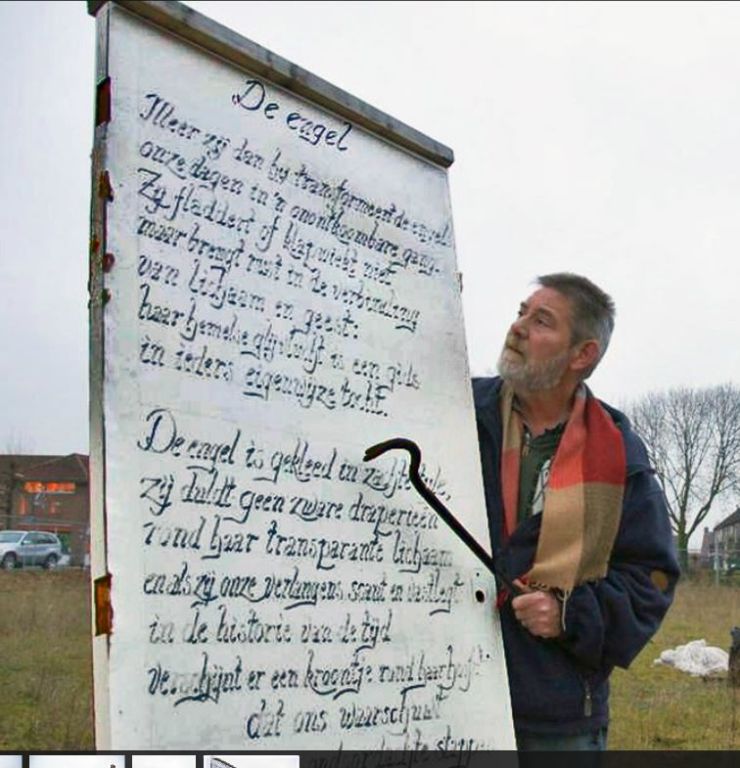 De engel
Meer zij dan hij transformeert de engel
onze dagen in 'n onontkoombare gang.
Zij fladdert of klapwiekt niet
maar brengt rust in de verbinding
van lichaam en geest.
haar hemelse glijvlucht is een gids
in ieders eigenwijze tocht.
De engel is gekleed in zachte tule,
zij duldt geen zware draperieën
rond haar transparante lichaam
en als zij onze verlangens scant en vastlegt
in de historie van de tijd
verschijnt er een kroontje rond haar hoofd
dat ons waarschuwt